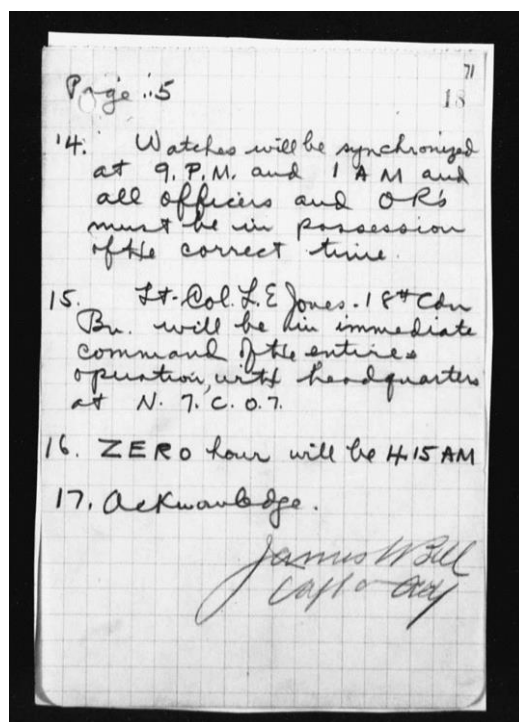 71
18
Page 5
14. Watches will be synchronized
at 9. P.M. and 1 AM and
all officers and OR's
must be in possession
of the correct time.
15. Lt-Col. L. E Jones - 18th Cdn
Bn. will be in immediate
command of the entire
operation, with headquarters
at N. 7. C. 0. 7.
16. ZERO hour will be 4.15 AM
17. Acknowledge.
James W Bell
Capt & Adj